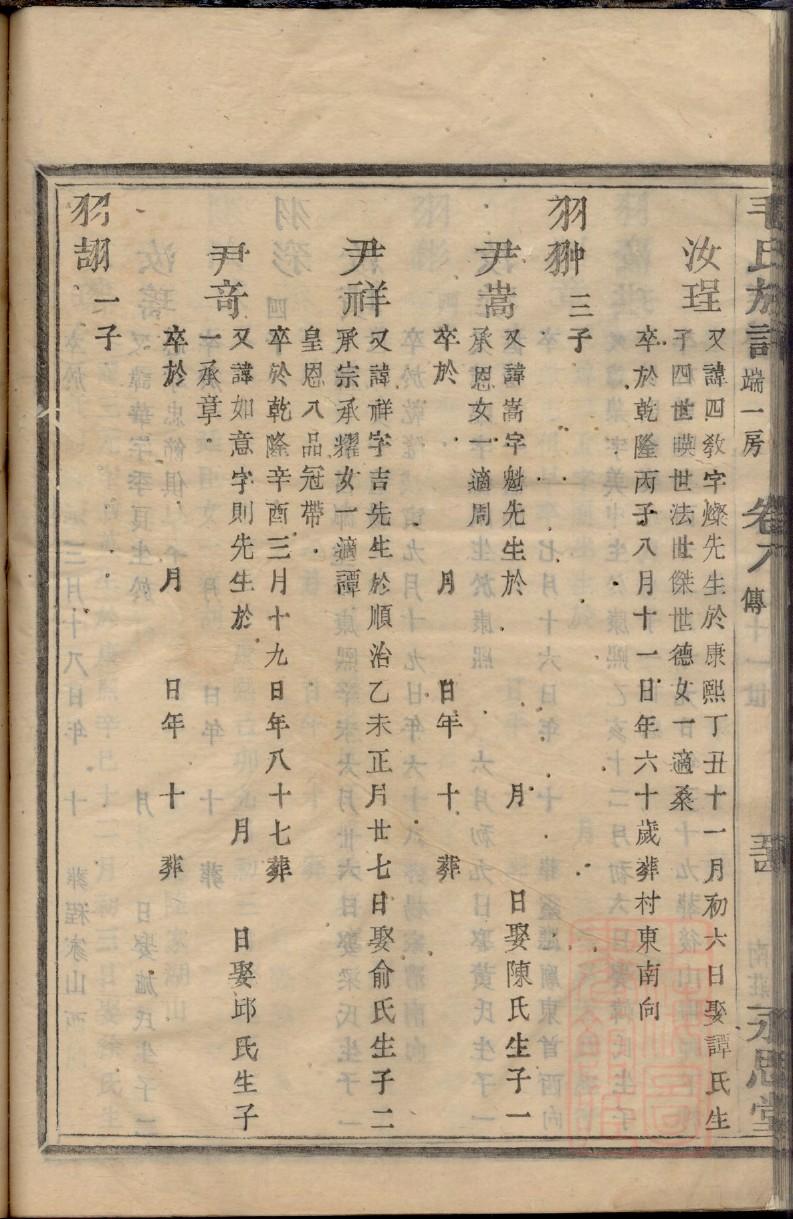 毛氏族譜 端一房 卷八 傳 永思堂
汝瑆 又諱四教字燦先生於康熙丁丑十一月初六日娶譚氏生
子四世暎世法世傑世德女一適桑
卒於乾隆丙子八月十一日年六十歲葬村東南向
羽翀 三子
尹嵩 又諱嵩字魁先生於 月 日娶陳氏生子一
承恩女一適周
卒於 月 日年 十 葬
尹祥 又諱祥字吉先生於順治乙未正月廿七日娶俞氏生子二
承宗承耀女一適譚
皇恩八品冠帶
卒於乾隆辛酉三月十九日年八十七葬
尹奇 又諱如意字則先生於 月 日娶邱氏生子
一承章
卒於 月 日年 十 葬
羽翮 一子